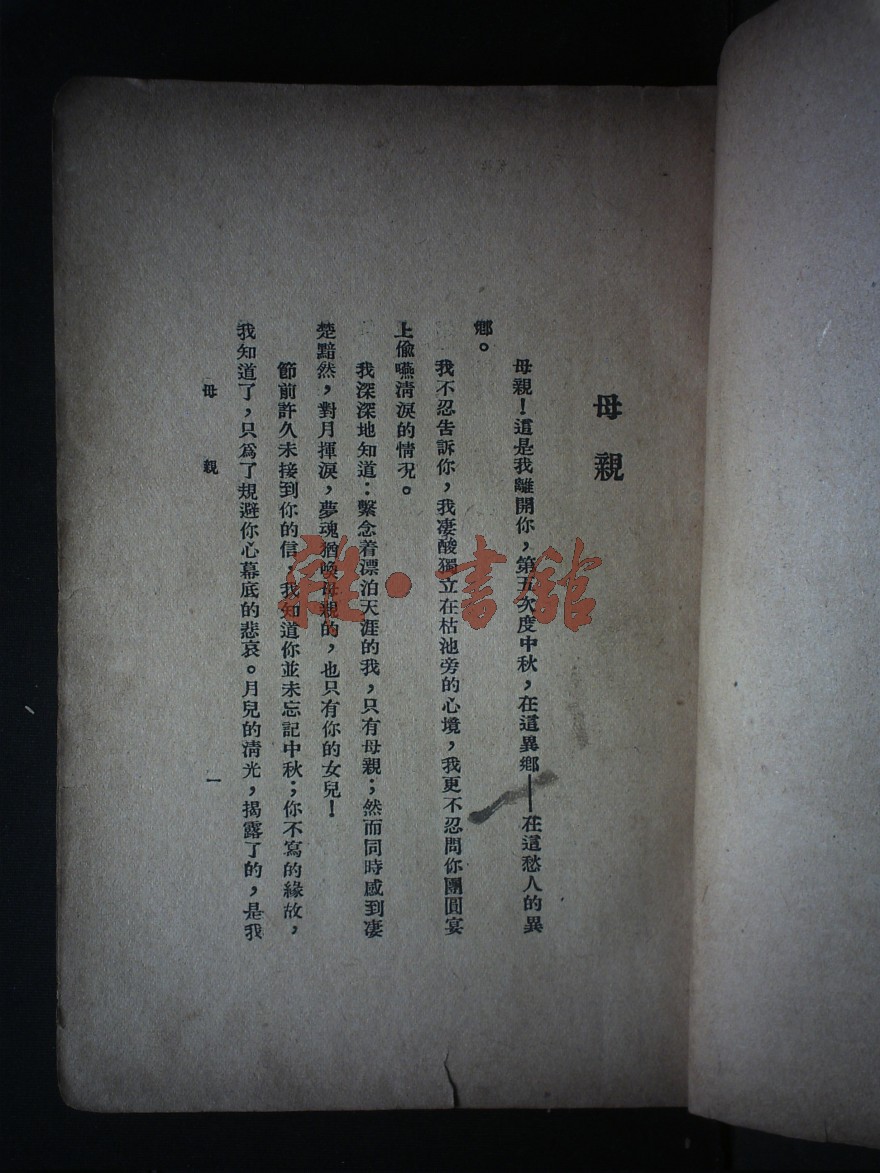 母親
母親！這是我離開你，第五次度中秋，在這異鄉——在這愁人的異
鄉。
我不忍告訴你，我凄酸獨立在枯池旁的心境，我更不忍問你團圓宴
上偷嚥清淚的情況。
我深深地知道：繫念着漂泊天涯的我，只有母親；然而同時感到凄
楚黯然，對月揮淚，夢魂猶喚母親的，也只有你的女兒！
節前許久未接到你的信，我知道你並未忘記中秋；你不寫的緣故，
我知道了，只爲了規避你心幕底的悲哀。月兒的清光，揭露了的，是我
母親
一
雜·書館